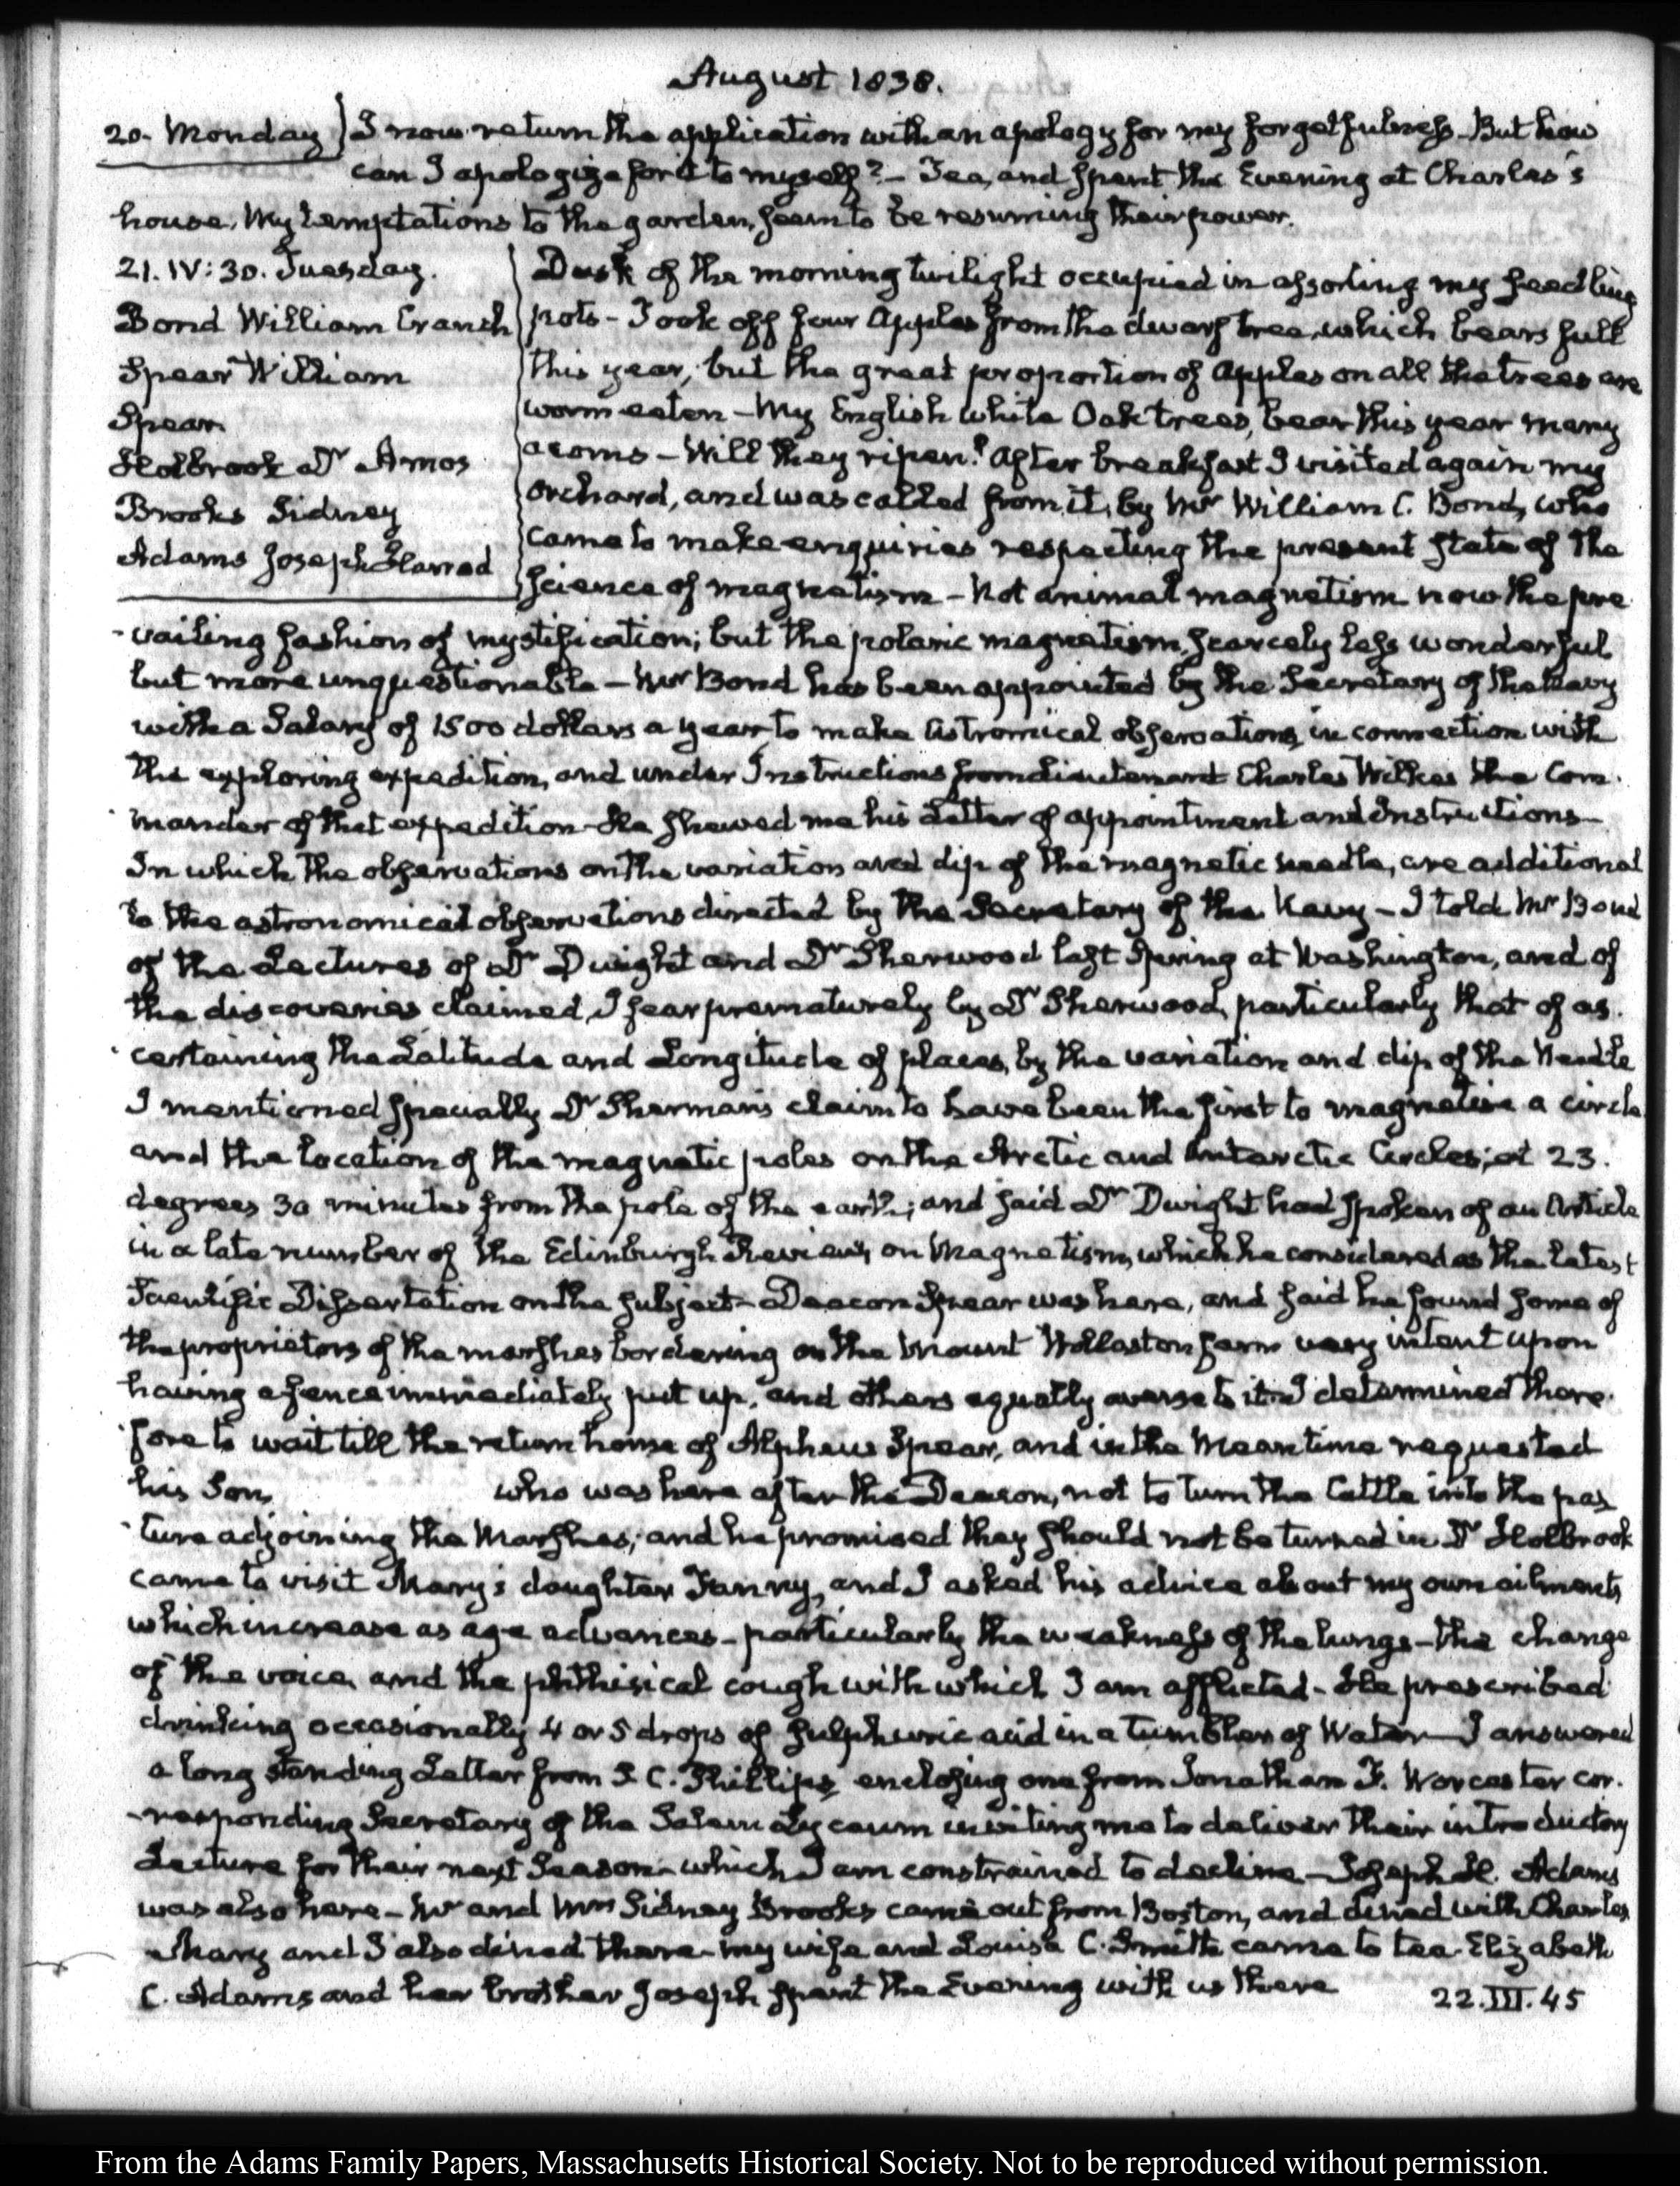 August 1838.
20. Monday } I now return the application with an apology for my forgetfulness. But how
can I apologize for it to myself?— Tea, and spent the Evening at Charles's
house. My temptations to the garden, seem to be resuming their power.
21. IV:30. Tuesday.
Bond William Cranch
Spear William
Spear
Holbrook Dr Amos
Brooks Sidney
Adams Joseph Harrod
Dusk of the morning twilight occupied in assorting my seedling
pots - Took off four Apples from the dwarf tree, which bears full
this year, but the great proportion of apples on all the trees are
worm eaten - My English white Oak trees, bear this year many
acorns - Will they ripen? After breakfast I visited again my
orchard, and was called from it, by Mr William C. Bond, who
came to make enquiries respecting the present state of the
science of magnetism - Not animal magnetism now the pre
-vailing fashion of mystification; but the polaric magnetism, scarcely less wonderful
but more unquestionable - Mr Bond has been appointed by the Secretary of the Navy
with a Salary of 1500 dollars a year to make Astromical observations, in connection with
the exploring expedition, and under Instructions from Lieutenant Charles Wilkes the Com-
-mander of that expedition - He shewed me his Letter of appointment and Instructions -
In which the observations on the variation and dip of the magnetic needle, are additional
to the astronomical observations directed by the Secretary of the Navy - I told Mr Bond
of the Lectures of Dr Dwight and Dr Sherwood last Spring at Washington, and of
the discoveries claimed, I fear prematurely by Dr Sherwood, particularly that of as-
-certaining the Latitude and Longitude of places, by the variation and dip of the Needle
I mentioned specially Dr Sherman's claim to have been the first to magnetise a circle
and the location of the magnetic poles on the Arctic and Antarctic Circles; at 23.
degrees 30 minutes from the pole of the earth; and said Dr Dwight had spoken of an Article
in a late number of the Edinburgh Review, on Magnetism, which he considered as the latest
Scientific Dissertation on the subject - Deacon Spear was here, and said he found some of
the proprietors of the marshes bordering on the Mount Wollaston farm very intent upon
having a fence immediately put up, and others equally averse to it. I determined there-
-fore to wait till the return home of Alpheus Spear, and in the Meantime requested
his Son, who was here after the Deacon, not to turn the Cattle into the pas
-ture adjoining the Marshes; and he promised they should not be turned in. Dr Holbrook
came to visit Mary's daughter Fanny, and I asked his advice about my own ailments
which increase as age advances - particularly the weakness of the lungs - the change
of the voice, and the phthisical cough with which I am afflicted - He prescribed
drinking occasionally 4 or 5 drops of sulphuric acid in a tumbler of Water - I answered
a long standing Letter from S. C. Phillips, enclosing one from Jonathan F. Worcester cor-
-responding Secretary of the Salem Lyceum inviting me to deliver their introductory
Lecture for their next Season - which I am constrained to decline - Joseph H. Adams
was also here - Mr and Mrs Sidney Brooks came out from Boston, and dined with Charles
Mary and I also dined there - my wife and Louisa C. Smith came to tea. Elizabeth
C. Adams and her brother Joseph spent the Evening with us there 22.III.45
From the Adams Family Papers, Massachusetts Historical Society. Not to be reproduced without permission.